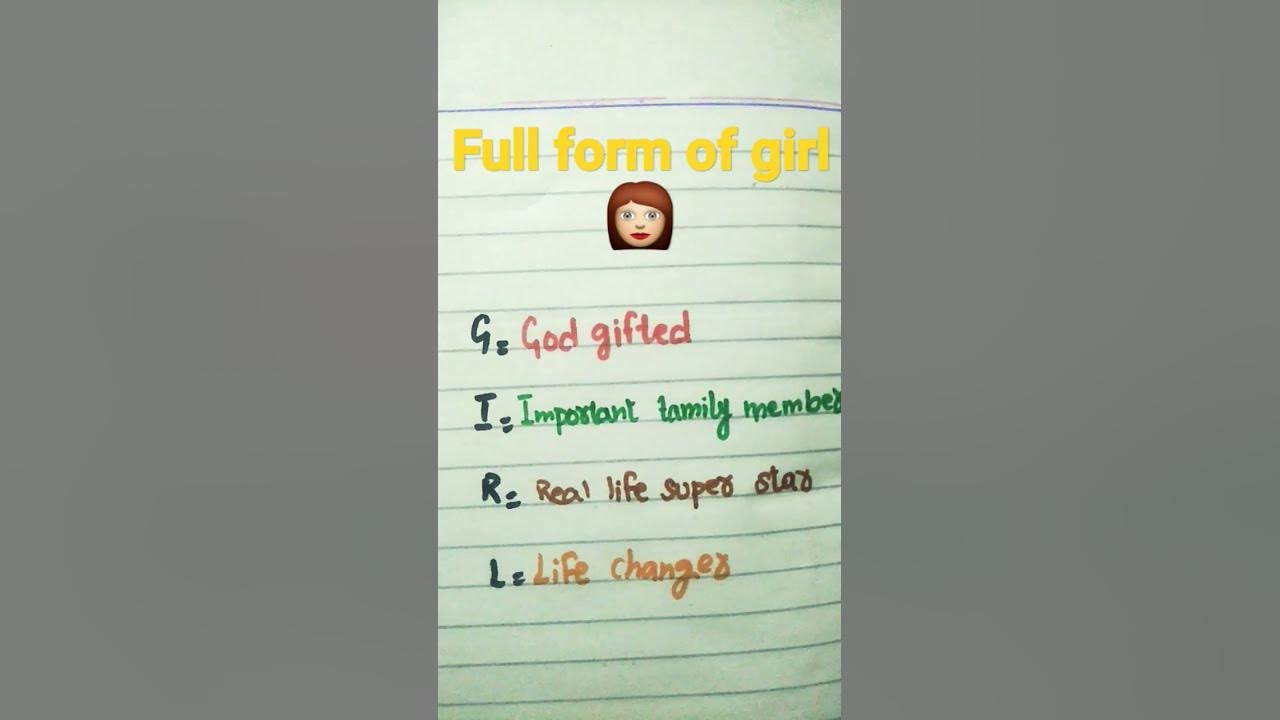 Full form of girl
G= God gifted
I= Important family member
R= Real life super star
L= Life changer